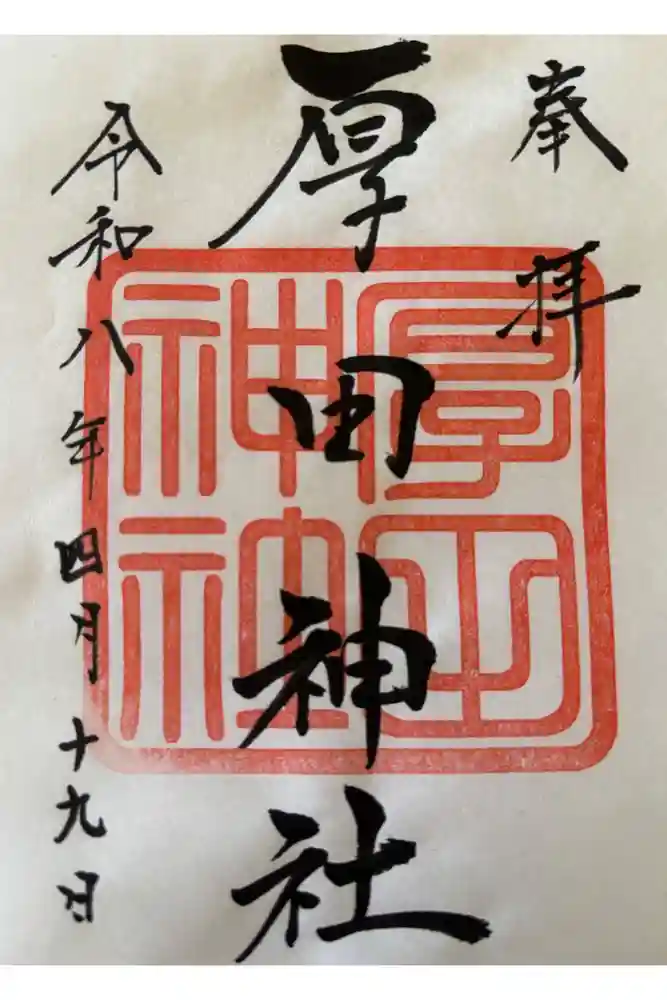 奉拝
厚田神社
令和八年四月十九日
厚田
神社